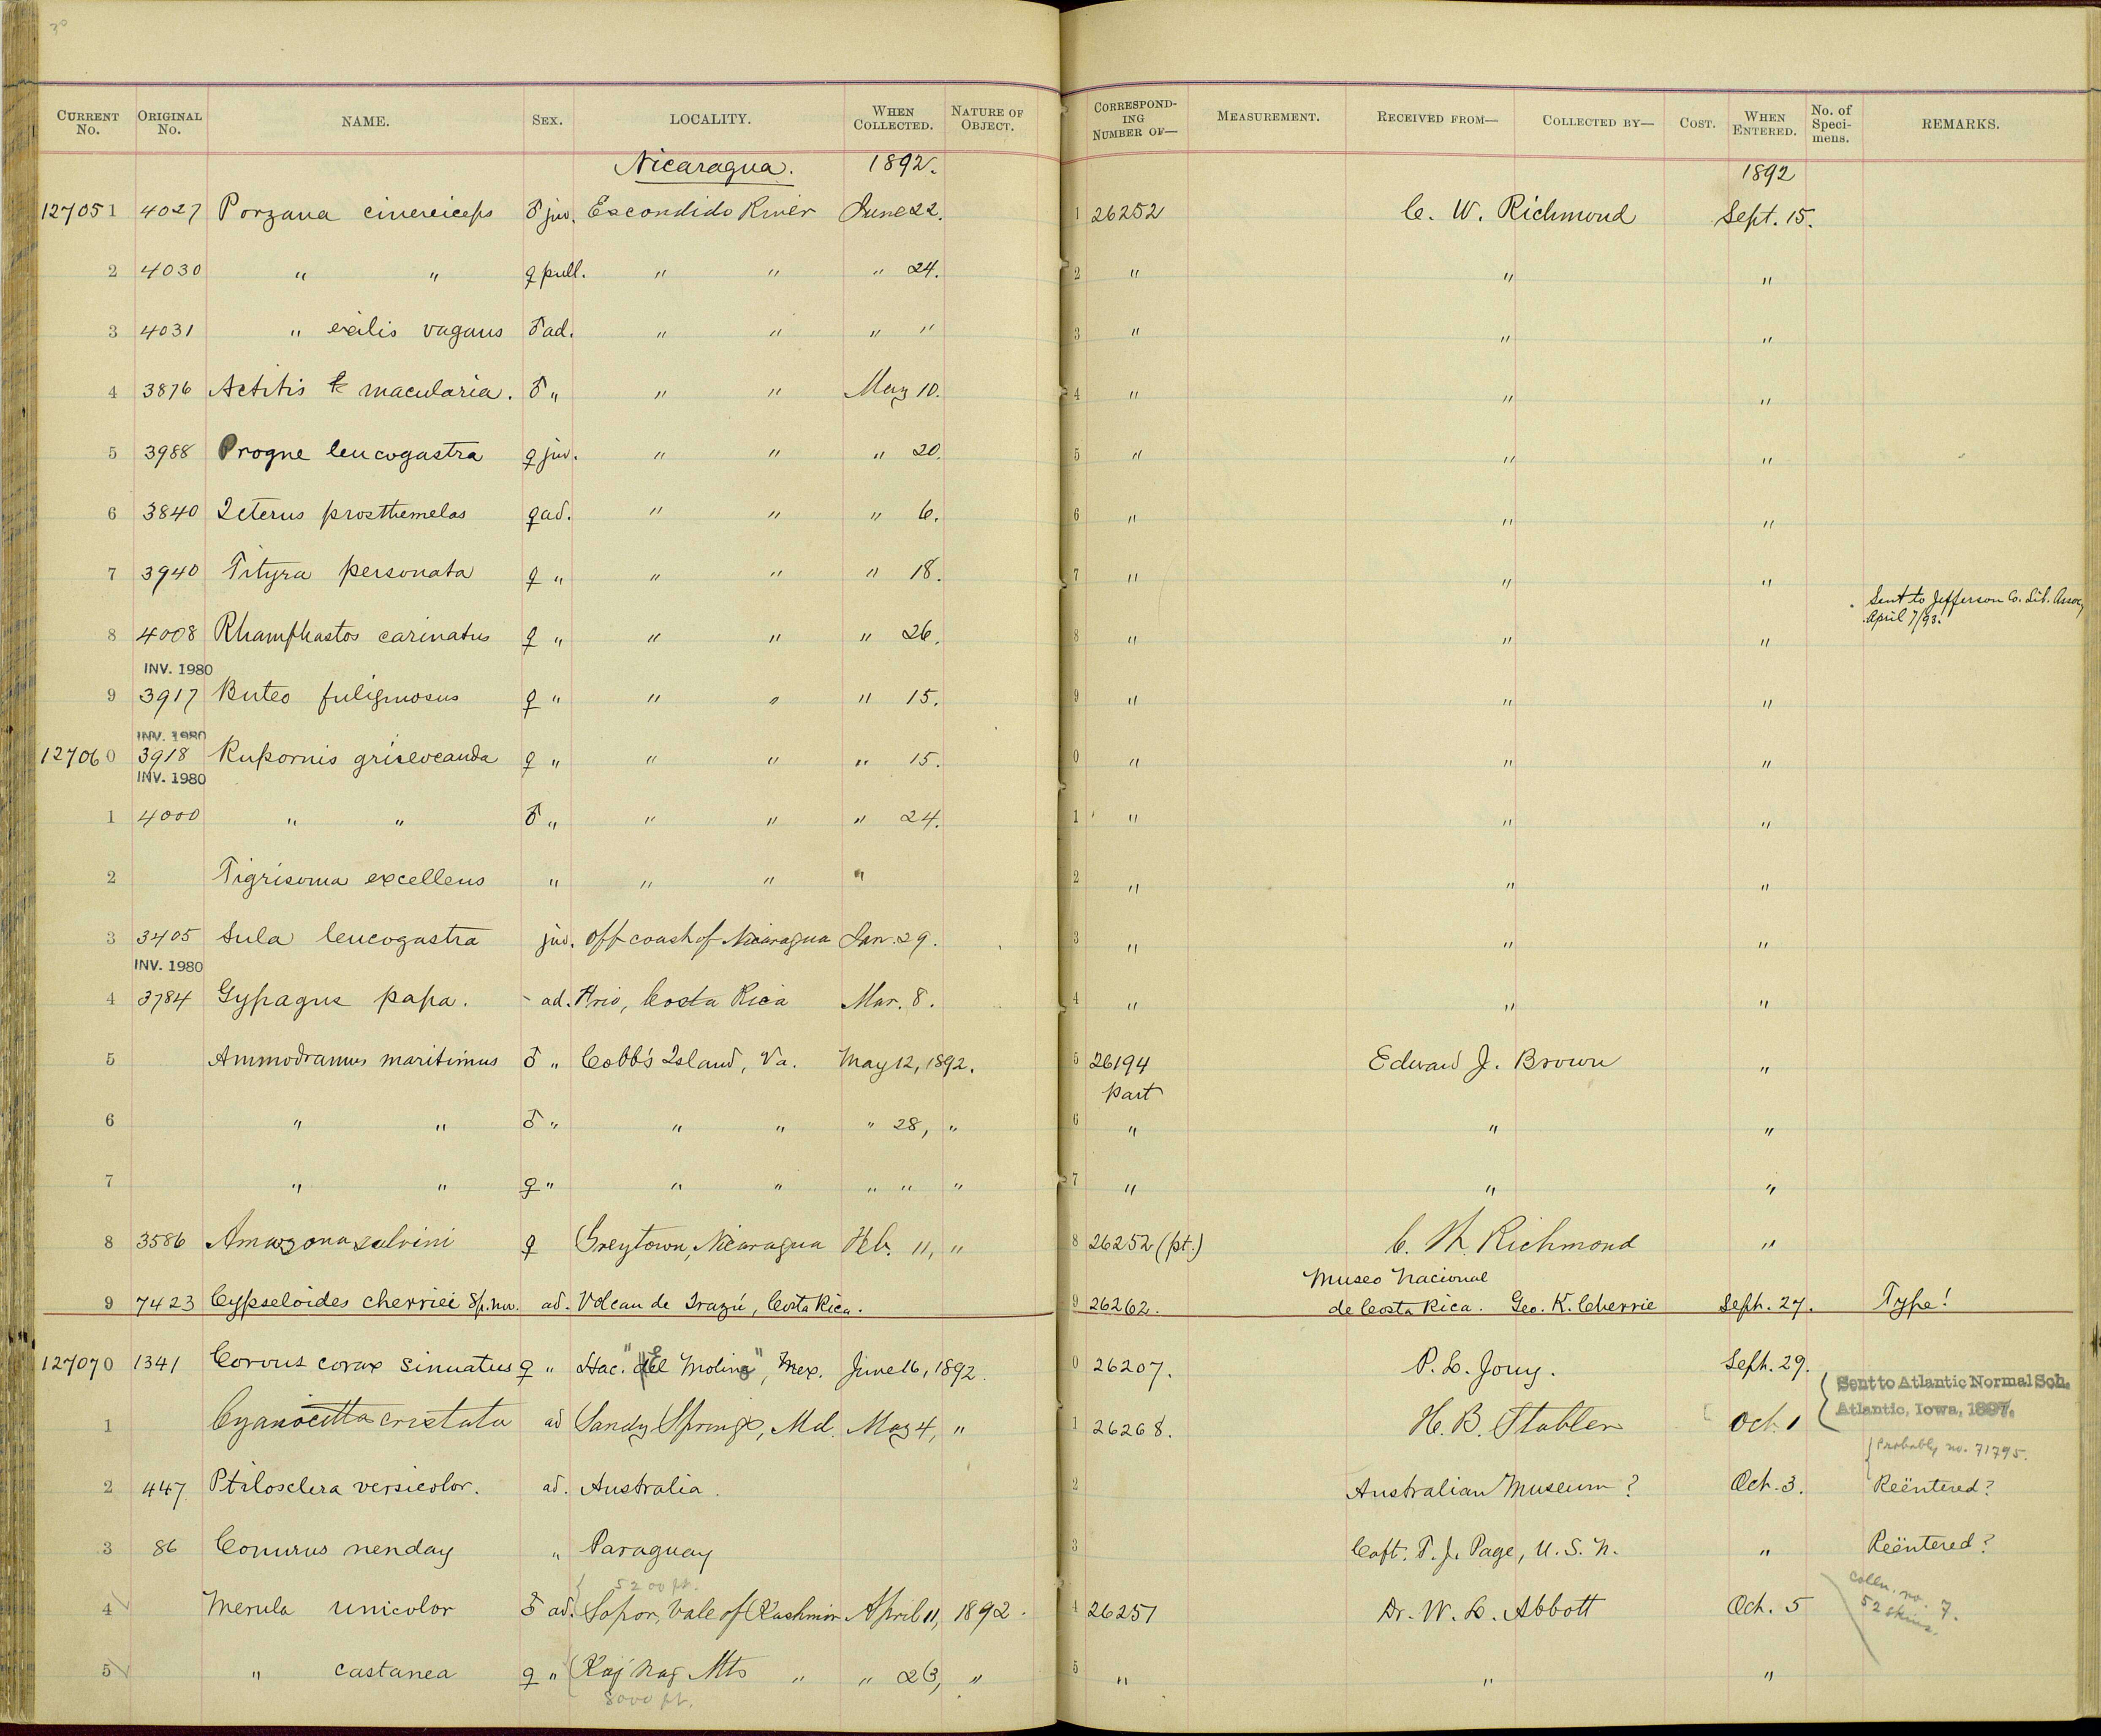 30
CURRENT No. ORIGINAL No. NAME. SEX. LOCALITY. WHEN COLLECTED. NATURE OF OBJECT. CORRESPONDING NUMBER OF— MEASUREMENT. RECEIVED FROM— COLLECTED BY— COST. WHEN ENTERED. No. of Specimens. REMARKS.
Nicaragua. 1892. 1892
127051 4027 Porzana cinereiceps ♂ juv. Escondido River June 22. 1 26252 C. W. Richmond Sept. 15.
2 4030 " " ♀ pull. " " " 24. 2 " " "
3 4031 " exilis vagans ♂ ad. " " " " 3 " " "
4 3876 Actitis macularia. ♂ " " " May 10. 4 " " "
5 3988 Progne leucogastra ♀ juv. " " " 20. 5 " " "
6 3840 Icterus prosthemelas ♀ ad. " " " 6. 6 " " "
7 3940 Tityra personata ♀ " " " " 18. 7 " " "
Sent to Jefferson Co. Lib. Assoc,
April 7/93.
8 4008 Rhamphastos carinatus ♀ " " " " 26. 8 " " "
INV. 1980
9 3917 Buteo fuliginosus ♀ " " " " 15. 9 " " "
INV. 1980
127060 3918 Rupornis griseocauda ♀ " " " " 15. 0 " " "
INV. 1980
1 4000 " " ♂ " " " " 24. 1 " " "
2 Tigrisoma excellens " " " " 2 " " "
3 3405 Sula leucogastra juv. off coast of Nicaragua Jan. 29. 3 " " "
INV. 1980
4 3784 Gypagus papa. - ad. Ario, Costa Rica Mar. 8. 4 " " "
5 Ammodramus maritimus ♂ " Cobb's Island, Va. May 12, 1892. 5 26194 Edward J. Brown "
part
6 " " ♂ " " " " 28, " 6 " " "
7 " " ♀ " " " " " " 7 " " "
8 3586 Amazona salvini ♀ Greytown, Nicaragua Feb. 11, " 8 26252 (pt.) C. W. Richmond "
Museo Nacional
9 7423 Cypseloides cherriei Sp. nov. ad. Volcan de Irazú, Costa Rica. 9 26262. de Costa Rica. Geo. K. Cherrie Sept. 27. Type!
127070 1341 Corvus corax sinuatus ♀ " Hac. "del Molino", Mex. June 16, 1892. 0 26207. P. L. Jouy. Sept. 29.
Sent to Atlantic Normal Sch.
Atlantic, Iowa, 1897.
1 Cyanocitta cristata ad Sandy Springs, Md. May 4, " 1 26268. H. B. Stabler Oct. 1
Probably no. 71795.
2 447 Ptilosclera versicolor. ad. Australia. 2 Australian Museum? Oct. 3. Reëntered?
3 86 Conurus nenday " Paraguay 3 Capt. T. J. Page, U. S. N. " Reëntered?
5200 ft.
4 Merula unicolor ♂ ad. Sopor, Vale of Kashmir April 11, 1892. 4 26251 Dr. W. L. Abbott Oct. 5
colln. no. 7.
52 skins.
5 " castanea ♀ " Kaj Nag Mts " " 23, " 5 " " "
8000 ft.